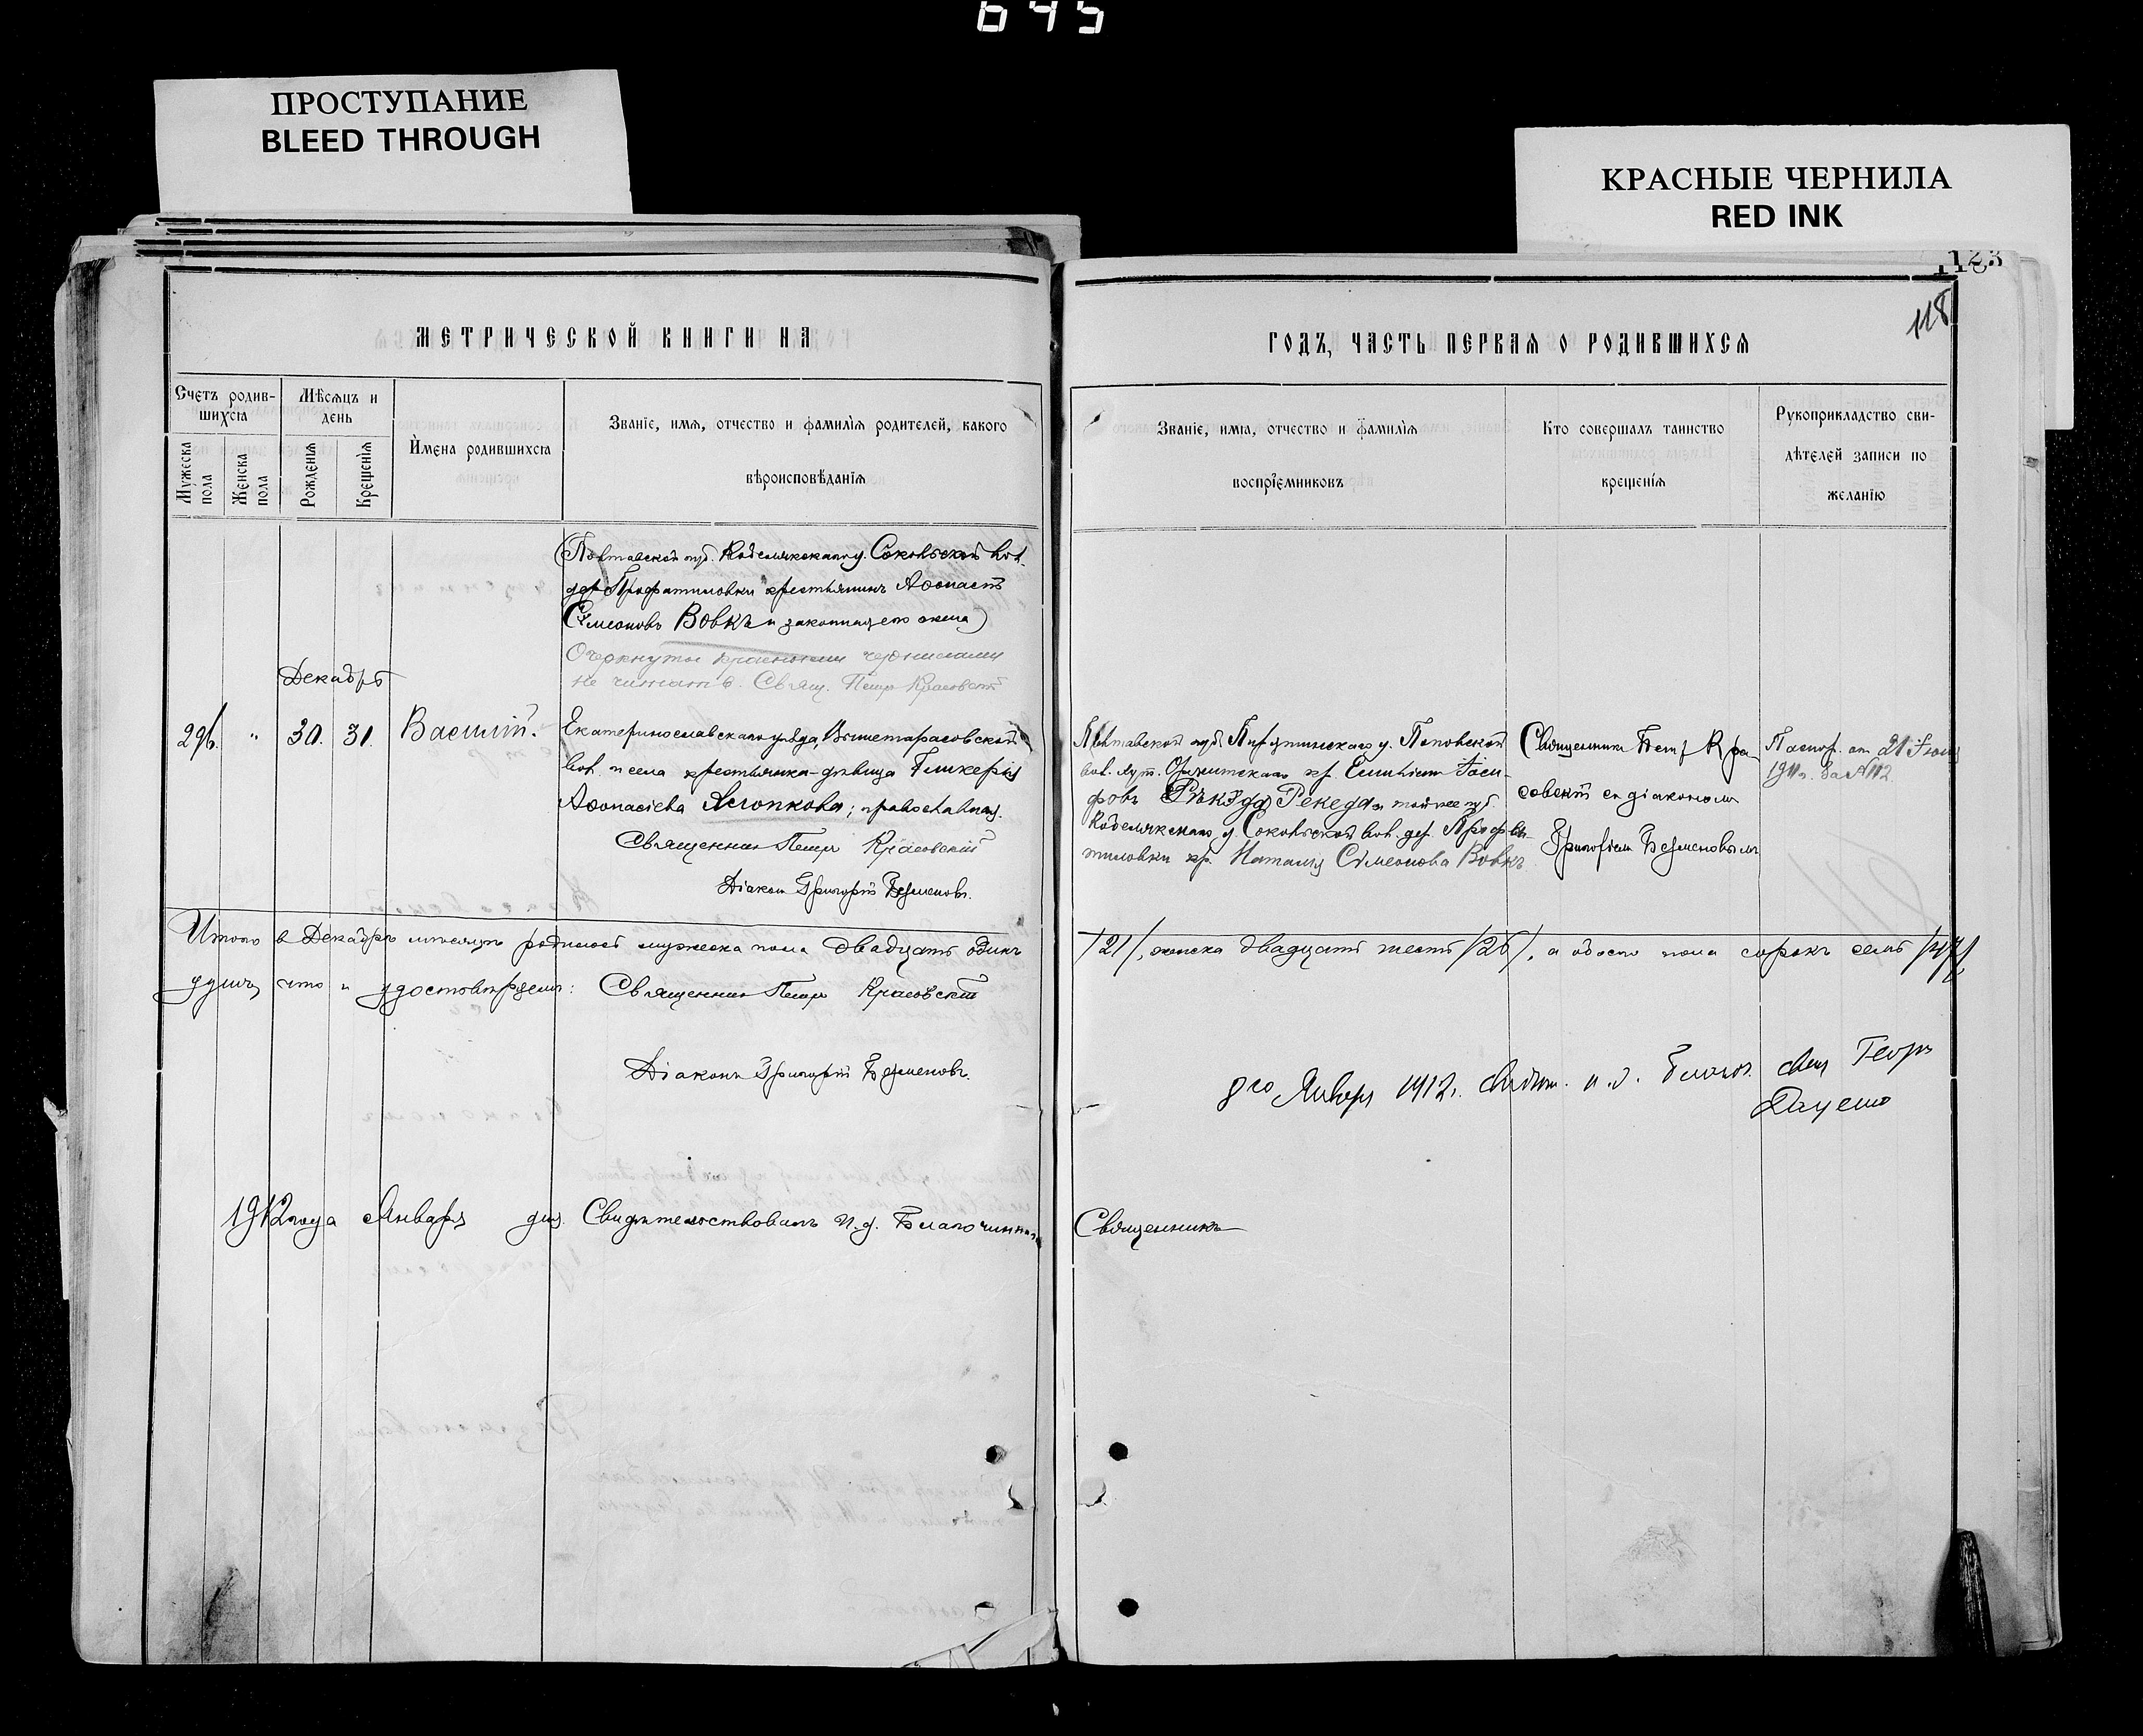 645
ПРОСТУПАНИЕ
BLEED THROUGH
КРАСНЫЕ ЧЕРНИЛА
RED INK
1123
118
МЕТРИЧЕСКОЙ КНИГИ НА
ГОДЪ, ЧАСТЬ ПЕРВАЯ О РОДИВШИХСЯ
Счетъ родив-
шихся
Мужеска пола
Женска пола
Мѣсяцъ и
день
Рожденія
Крещенія
Имена родившихся
Званіе, имя, отчество и фамилія родителей, какого
вѣроисповѣданія
Званіе, имя, отчество и фамилія
воспріемниковъ
Кто совершалъ таинство
крещенія
Рукоприкладство сви-
дѣтелей записи по
желанію
(Полтавской губ. Кобелякскаго у. Сокольской вол.
дер. крестьянинъ Аѳонасій
Сѵмеоновъ Вовкъ и законная его жена)
Очеркнутое красными чернилами
не читать. Свящ. Петръ Красовскій
Декабрь
296. " 30. 31. Василій.
Екатеринославскаго уѣзда, Вышетарасовской
вол. и села крестьянка-дѣвица Гликерія
Аѳонасіева; православная.
Священникъ Петръ Красовскій
Діаконъ Григорій Безменовъ.
Полтавской губ. Пирятинскаго у. Поповской
вол. хут. Оржитскаго кр. Іоси-
фовъ Рекедда и той же губ.
Кобелякскаго у. Сокольской вол. дер.
кр. Наталія Сѵмеонова Вовкъ
Священникъ Петръ Кра-
совскій съ діакономъ
Григоріемъ Безменовымъ
Паспор. от 21
1911 г. за № 112.
Итого в Декабрѣ мѣсяцѣ родилось мужеска пола двадцать одинъ
/21/, женска двадцать шесть /26/, а обоего пола сорокъ семь /47/
душъ, что и удостовѣряемъ: Священникъ Петръ Красовскій
Діаконъ Григорій Безменовъ.
8го Января 1912 г. и.д. Благоч. свящ. Георг
1912 года Января дня Свидѣтельствовалъ и.д. Благочиннаго
Священникъ